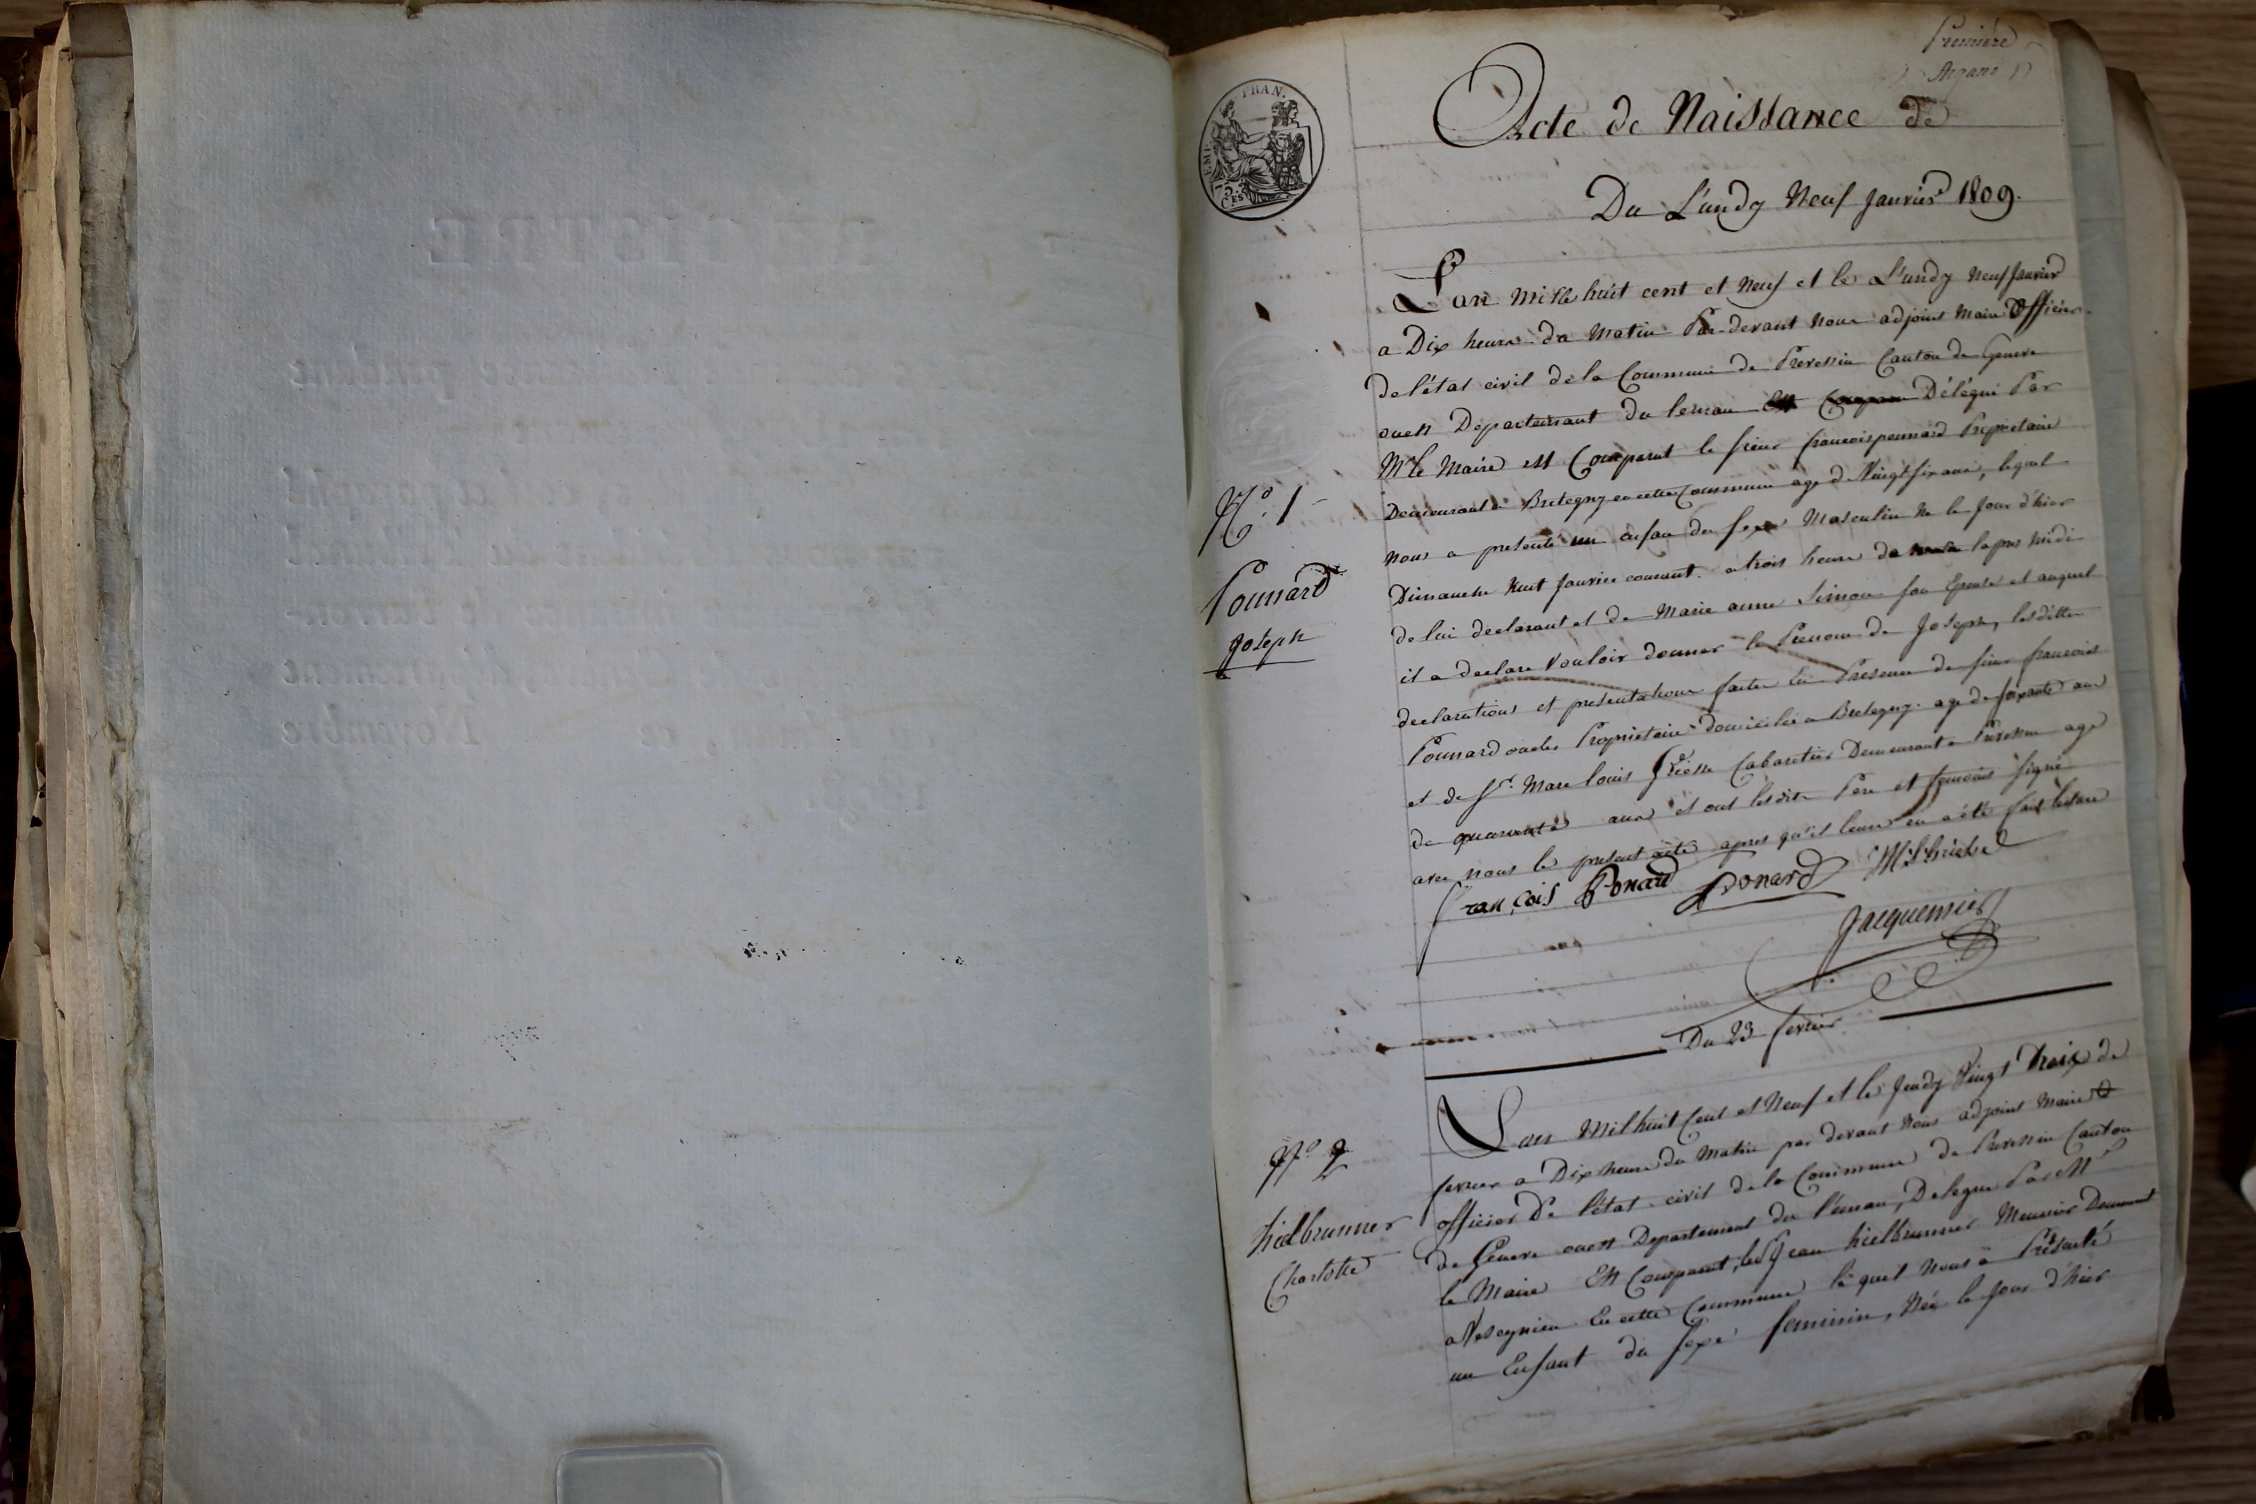 Première
Acte de Naissance de
Du Lundy Neuf Janvier 1809.
EMP. FRAN.
75 CES
L'an mille huit cent et Neuf et le Lundy neuf Janvier
a Dix heure du Matin Par-devant Nous adjoint Maire Officier
de l'état civil de la Commune de Prevessin Canton de Geneve
ouest Departement du leman Délégué Par
Mr le Maire est Comparut le sieur francois pounard Propriétaire
Demeurant a Bretegny en cette Commune age de Vingt six ans, lequel
nous a presenté un enfan du sexe Masculin ne le jour d'hier
Dimanche huit Janvier courant a trois heure de lapres midi
de lui declarant et de Marie anne Simon son Epouse et auquel
il a declare Vouloir donner le Prenom de Joseph, lesdittes
declarations et presentations faites en Presence de sieur francois
Pounard oncle Proprietaire domicilié a Bretegny age de soixante ans
et de Sr. Marc louis Cabaretier Demeurant a Prevessin age
de quarante ans et ont lesdits Pere et temoins signé
avec nous le present acte apres qu'il leure en a été fait lecture
No. 1
Pounard
Joseph
françois Ponard Ponard
Jacquemier
Du 23 fevrier
L'an Mil huit Cent et Neuf et le Jeudy Vingt Trois de
fevrier a Dix heure du Matin par devant Nous adjoint Maire
officier De l'état civil de la Commune de Prevessin Canton
de Geneve ouest Departement du Leman, Delegue Par Mr
le Maire Est Comparut, le Sr Jean hielbrunner Meunier Demeurant
a Vesegnin En cette Commune le quel Nous a Présenté
un Enfant du sexe feminin, Née le jour d'hier
No. 2
hielbrunner
Charlotte